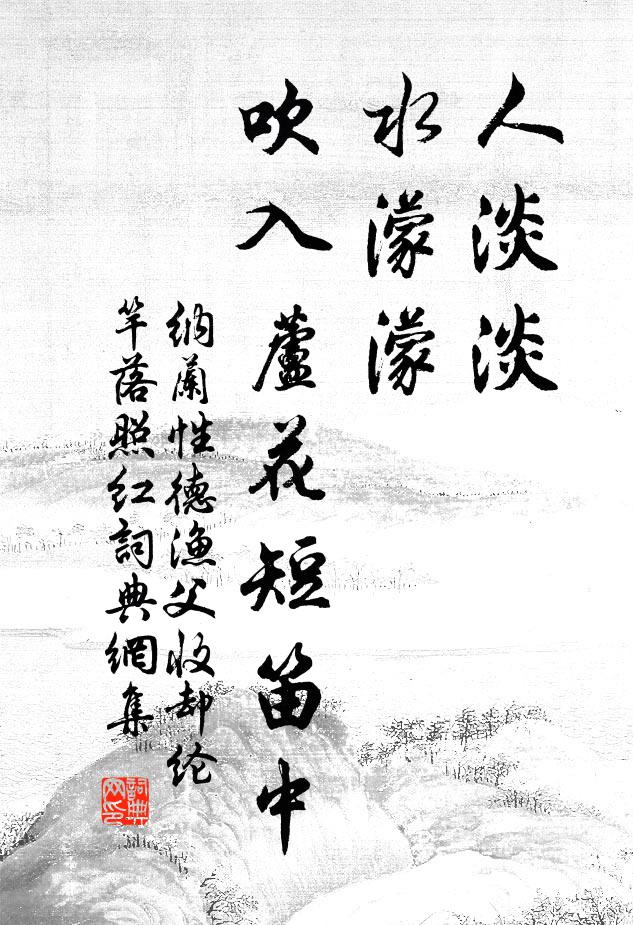 人淡淡
水濛濛
吹入蘆花短笛中
納蘭性德漁父收却纶
竿落照红詞典網集
詞典
网印